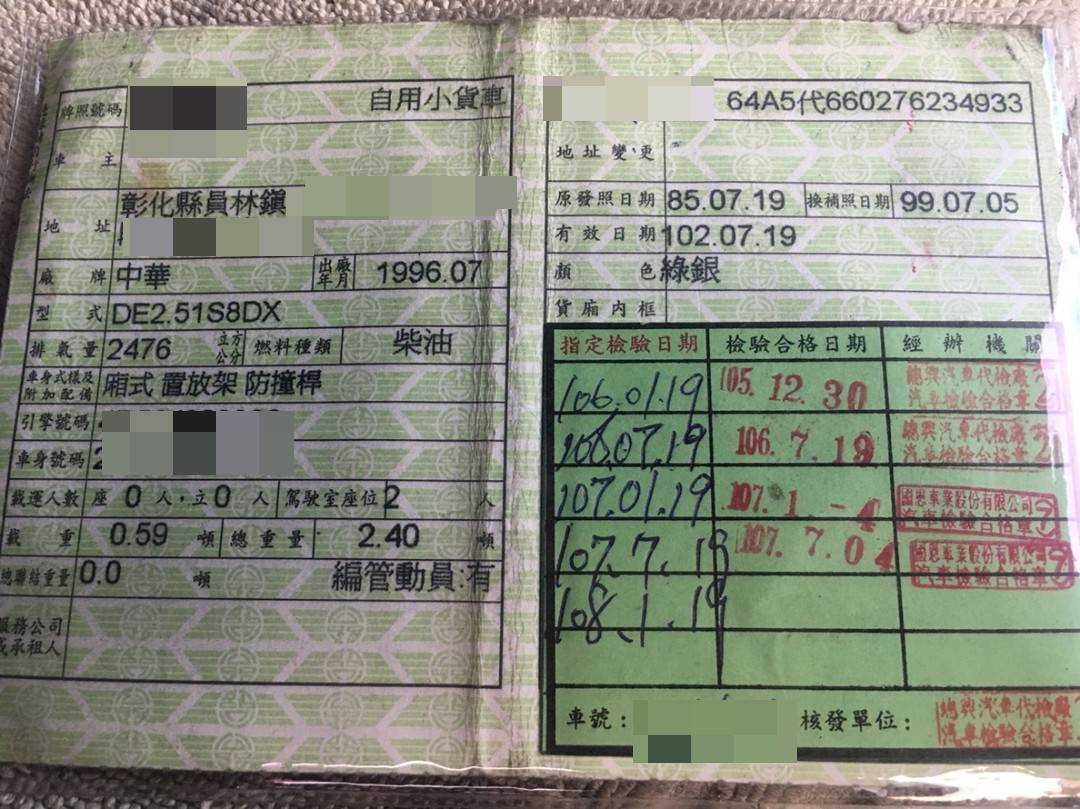 牌照號碼 自用小貨車
車主
地址 彰化縣員林鎮
廠牌 中華 出廠年月 1996.07
型式 DE2.51S8DX
排氣量 2476 立方公分 燃料種類 柴油
車身式樣及附加配備 廂式 置放架 防撞桿
引擎號碼
車身號碼
載運人數 座 0 人，立 0 人 駕駛室座位 2 人
載重 0.59 噸 總重量 2.40 噸
總聯結重量 0.0 噸 編管動員:有
服務公司或承租人
64A5代660276234933
地址變更
原發照日期 85.07.19 換補照日期 99.07.05
有效日期 102.07.19
顏色 綠銀
貨廂內框
指定檢驗日期 檢驗合格日期 經辦機關
106.01.19 105.12.30 總興汽車代檢廠 汽車檢驗合格章
106.07.19 106.7.19 總興汽車代檢廠 汽車檢驗合格章
107.01.19 107.1.-4 國恩車業股份有限公司 汽車檢驗合格章
107.7.19 107.7.04 國恩車業股份有限公司 汽車檢驗合格章
108.1.19
車號： 核發單位： 總興汽車代檢廠 汽車檢驗合格章